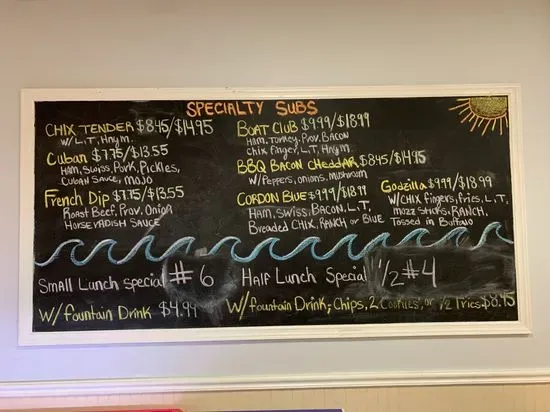 SPECIALTY SUBS
CHIX TENDER $8.45/$14.95
W/L,T, Hny.m.
Cuban $7.75/$13.55
Ham, Swiss, Pork, Pickles,
Cuban Sauce, mojo
French Dip $7.75/$13.55
Roast Beef, Prov. Onion
Horseradish Sauce
Boat Club $9.99/$18.99
Ham, Turkey, Prov, Bacon
Chix finger, L,T, Hny.m
BBQ Bacon Cheddar $8.45/$14.95
W/Peppers, onions, mushroom
Cordon Blue $9.99/$18.99
Ham, Swiss, Bacon, L,T,
Breaded Chix, Ranch or Blue
Godzilla $9.99/$18.99
W/Chix fingers, fries, L,T,
mozz sticks, Ranch,
Tossed in Buffalo
Small Lunch special #6
W/ fountain Drink $4.99
Half Lunch Special 1/2 #4
W/fountain Drink, Chips, 2 Cookies, or 1/2 fries $8.45